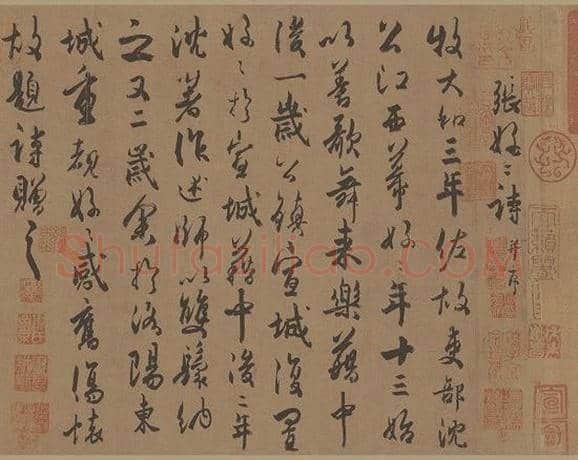 張好々詩并序
牧大和三年佐故吏部沈
公江西幕好々年十三始
以善歌舞來樂籍中
後一歲公鎮宣城復置
好々於宣城籍中後二年
沈著作述師以雙鬟納
之又二歲余於洛陽東
城重覩好々感舊傷懷
故題詩贈之
Shufaziliao.com